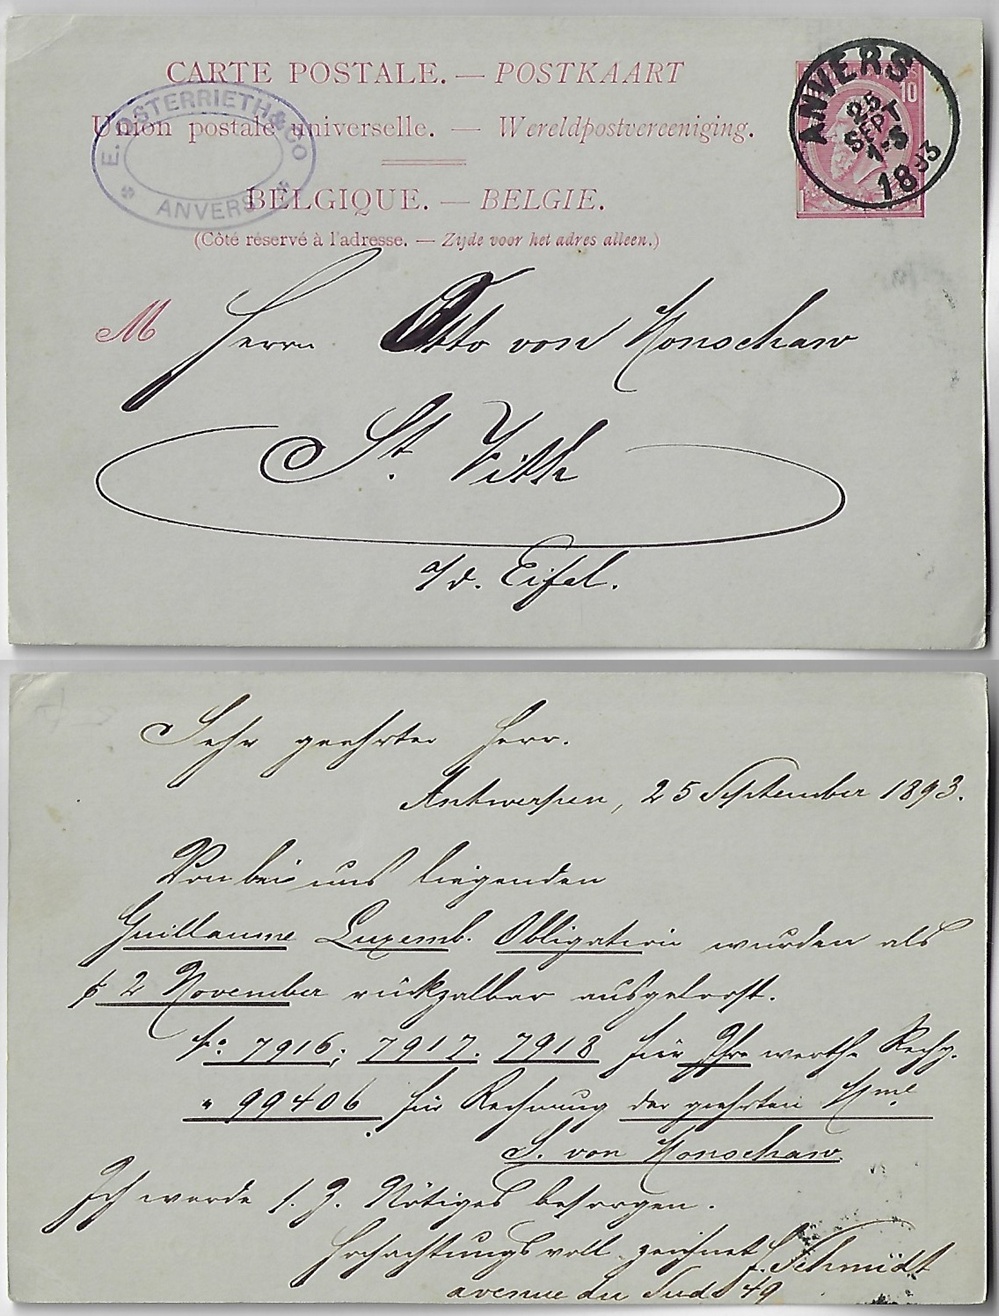 CARTE POSTALE. — POSTKAART
Union postale universelle. — Wereldpostvereeniging.
BELGIQUE. — BELGIE.
(Côté réservé à l'adresse. — Zijde voor het adres alleen.)
E. OSTERRIETH & CO
ANVERS
10
ANVERS
25
SEPT
1893
M
Herrn Otto von Monschaw
St. Vith
a/d. Eifel.
Sehr geehrter Herr.
Antwerpen, 25 September 1893.
Von bei uns liegenden
Guillaume Luxemb. Obligation wurden als
p 2 November rückzalbar ausgeloost.
No 7916; 7917. 7918 für Ihre werthe Rechg.
" 99406 für Rechnung der geehrten Mme
S. von Monschaw
Ich werde s. Z. Nötiges besorgen.
Hochachtungsvoll zeichnet J. Schmidt
avenue du Sud 49